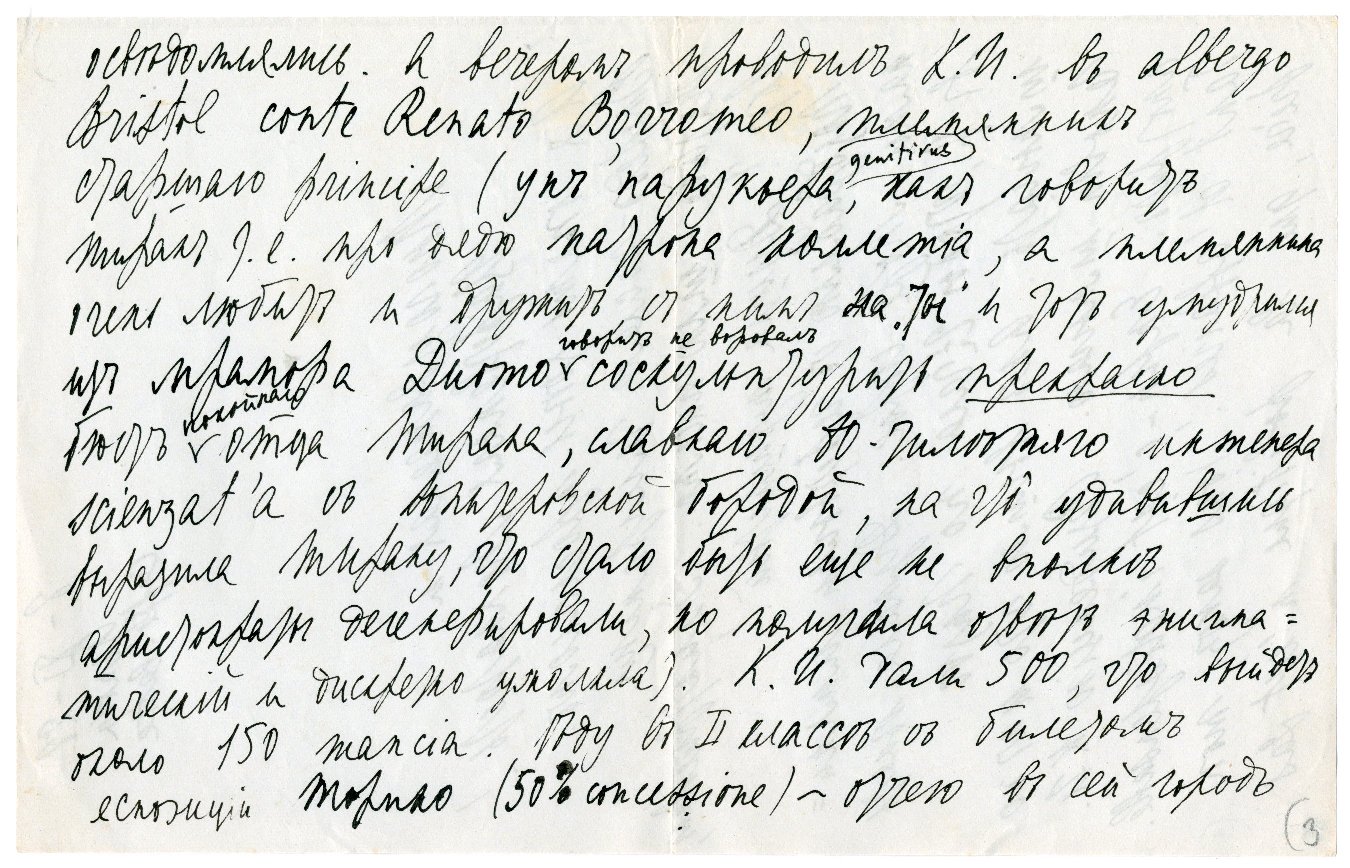 освѣдомлялись. А вечеромъ проводилъ К.И. въ albergo
Bristol conte Renato Borromeo, племянникъ
старшаго principe (унъ парукьера, genitivus какъ говоритъ
Тиранъ т.е. про дядю патрона коллегiа, а племянника
очень любитъ и дружитъ съ нимъ на „ты" и тотъ умудрился
изъ мрамора Duomo говоритъ не воровалъ соскульптуритъ прекрасно
бюстъ покойнаго отца Тирана, славнаго 80-тилѣтняго инженера
scienzat'а съ бородой, на что удивившись
выразила Тирану, что стало быть еще не вполнѣ
аристократы дегенерировали, но получила отвѣтъ энигма=
тическiй и дискретно умолкла). К.И. дали 500, что выйдетъ
около 150 mancia. Ѣду въ II классѣ съ билетомъ
еспозицiи Торино (50% concessione) – отчего въ сей городъ
(3